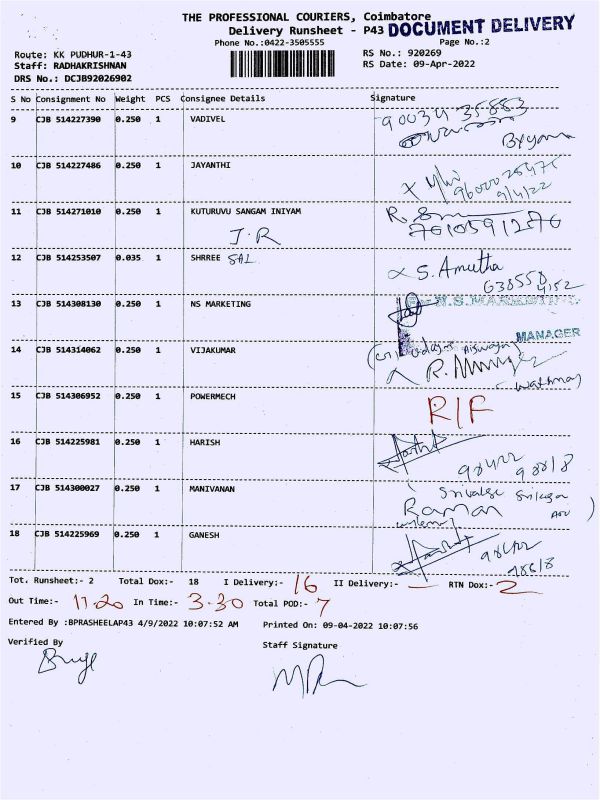 THE PROFESSIONAL COURIERS, Coimbatore
Delivery Runsheet - P43 DOCUMENT DELIVERY
Phone No.:0422-3505555 Page No.:2
Route: KK PUDHUR-1-43 RS No.: 920269
Staff: RADHAKRISHNAN RS Date: 09-Apr-2022
DRS No.: DCJB92026902
S No Consignment No Weight PCS Consignee Details Signature
9 CJB 514227390 0.250 1 VADIVEL 90034 35883
10 CJB 514227486 0.250 1 JAYANTHI
9/4/22
11 CJB 514271010 0.250 1 KUTURUVU SANGAM INIYAM
J.R 7610591276
12 CJB 514253507 0.035 1 SHRREE SAL S. Amutha
638550
4152
13 CJB 514308130 0.250 1 NS MARKETING
MANAGER
14 CJB 514314062 0.250 1 VIJAKUMAR
15 CJB 514306952 0.250 1 POWERMECH R/F
16 CJB 514225981 0.250 1 HARISH
98422
98818
17 CJB 514300027 0.250 1 MANIVANAN Raman
18 CJB 514225969 0.250 1 GANESH
Tot. Runsheet:- 2 Total Dox:- 18 I Delivery:- 16 II Delivery:- — RTN Dox:- 2
Out Time:- 11.20 In Time:- 3.30 Total POD:- 7
Entered By :BPRASHEELAP43 4/9/2022 10:07:52 AM Printed On: 09-04-2022 10:07:56
Verified By Staff Signature